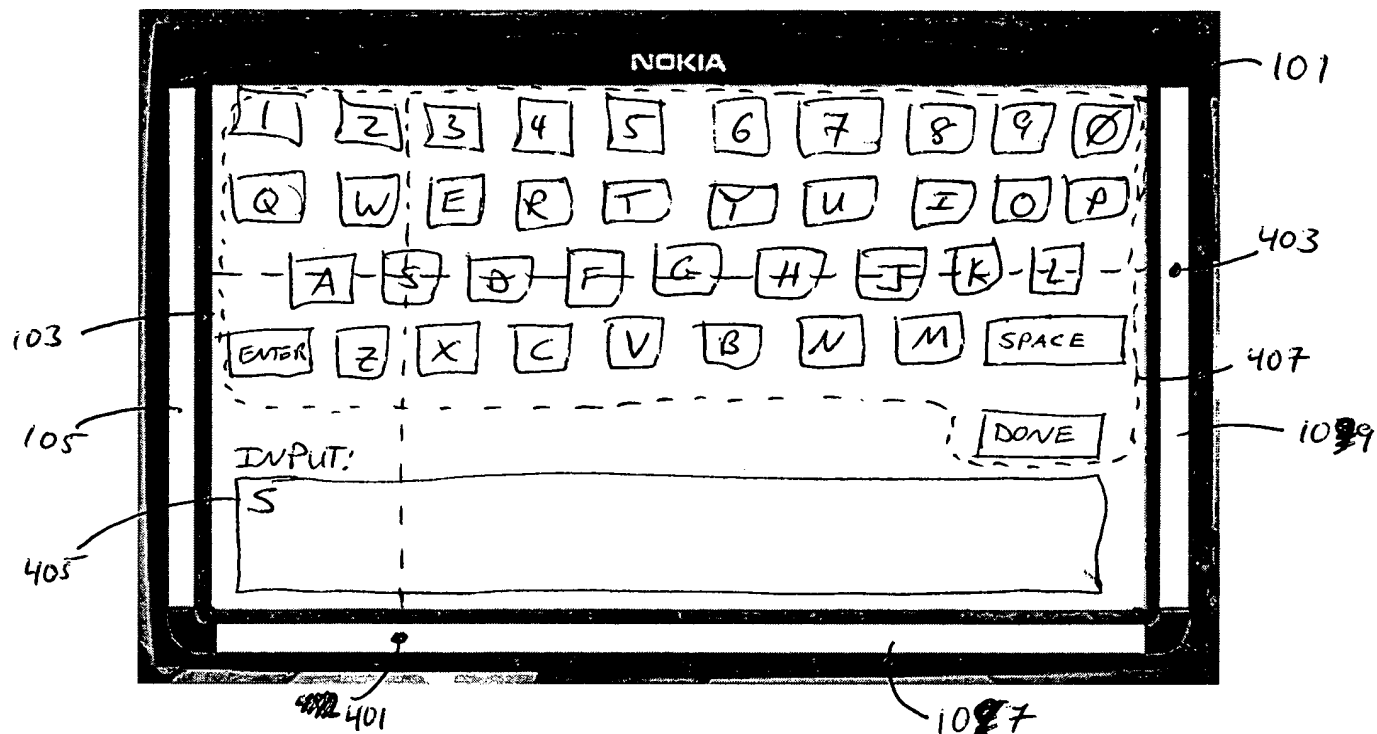 NOKIA
101
1 2 3 4 5 6 7 8 9 Ø
Q W E R T Y U I O P
403
A S D F G H J K L
103
ENTER Z X C V B N M SPACE
407
105
DONE
109
INPUT:
S
405
401
107